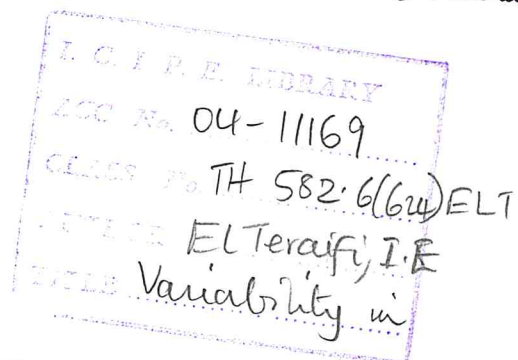 I. C. I P. E. LIBRARY
ACC No. 04-11169
CLASS No. TH 582.6(624)ELT
AUTHOR El Teraifi, I.E
TITLE Variability in